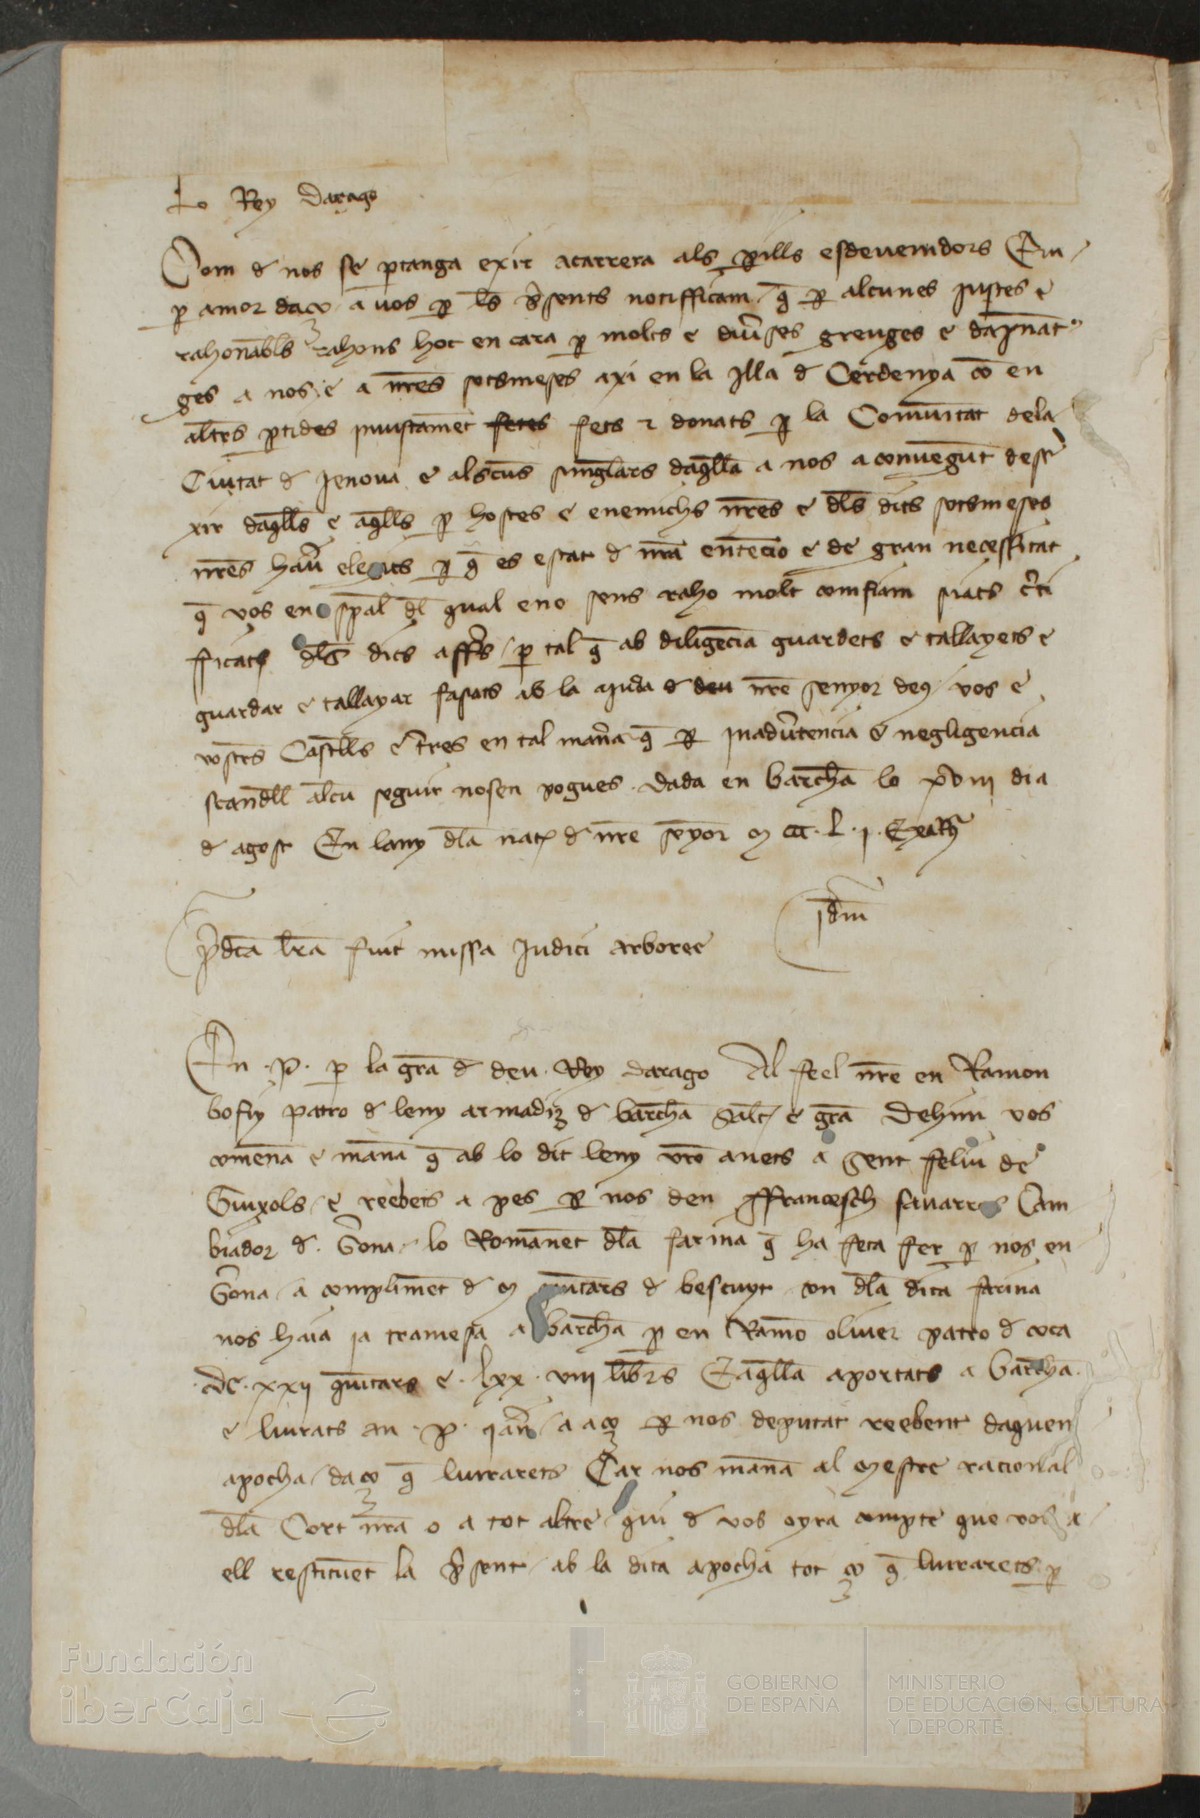 Lo Rey Darago
Com d nos se ptanga exir acarrera als pills esdevenidors Em
p amor daço a vos p les psents notifficam q p alcunes justes e
rahonabls rahons hoc encara p molts e diverses greuges e dapnat
ges a nos e a nres sotsmeses axi en la Illa d Cerdenya co en
altres ptides injustament fetes fets e donats p la Comunitat dela
Ciutat d Jenova e alscuns singlars daqlla a nos a convengut desi
xir daqlls e aqlls p hostes e enemichs nres e dls dits sotsmeses
nres hav elegits p q es estat d nra entencio e de gran necessitat
q vos en spal dl qual eno sens raho molt confiam siats certi
fficats dls dits affers p tal q ab diligencia guardets e tallayets e
guardar e tallayar fasats ab la ajuda d deu nre senyor deu vos e
vostrs Castells e tres en tal manera q p inadvertencia e negligencia
scandell alcu seguir nosen pogues. Dada en barchna lo xviii dia
d agost En lany dla nat d nre senyor M ccc. L. i.
Idem
pdca lra fuit missa Judici arboree
En .P. p la gra d deu Rey darago Al feel nre en Ramon
bofiy patro d leny armadiz d barchna Salt e gra Dehim vos
comena e mana q ab lo dit leny vro anets a Sent feliu de
Guixols e reebets a pes p nos den ffrancesch savarres Cam
biador d Gerona lo Romanent dla farina q ha feta fer p nos en
Gerona a compliment d M quintars d bescuyt con dla dita farina
nos haia ja tramesa a barchna p en Ramo oliver patro d coca
.dc. xxii quintars e. lxx. viii libres Eaqlla aportats a barchna
e liurats an .P. a aço p nos deputat reebent daquen
apocha daço q liurarets Car nos mana al Mestre racional
dla Cort nra o a tot altre qui d vos oyra compte que vos a
ell restituent la psent ab la dita apocha tot ço q liurarets p
Fundación
iberCaja
GOBIERNO
DE ESPAÑA
MINISTERIO
DE EDUCACIÓN, CULTURA
Y DEPORTE